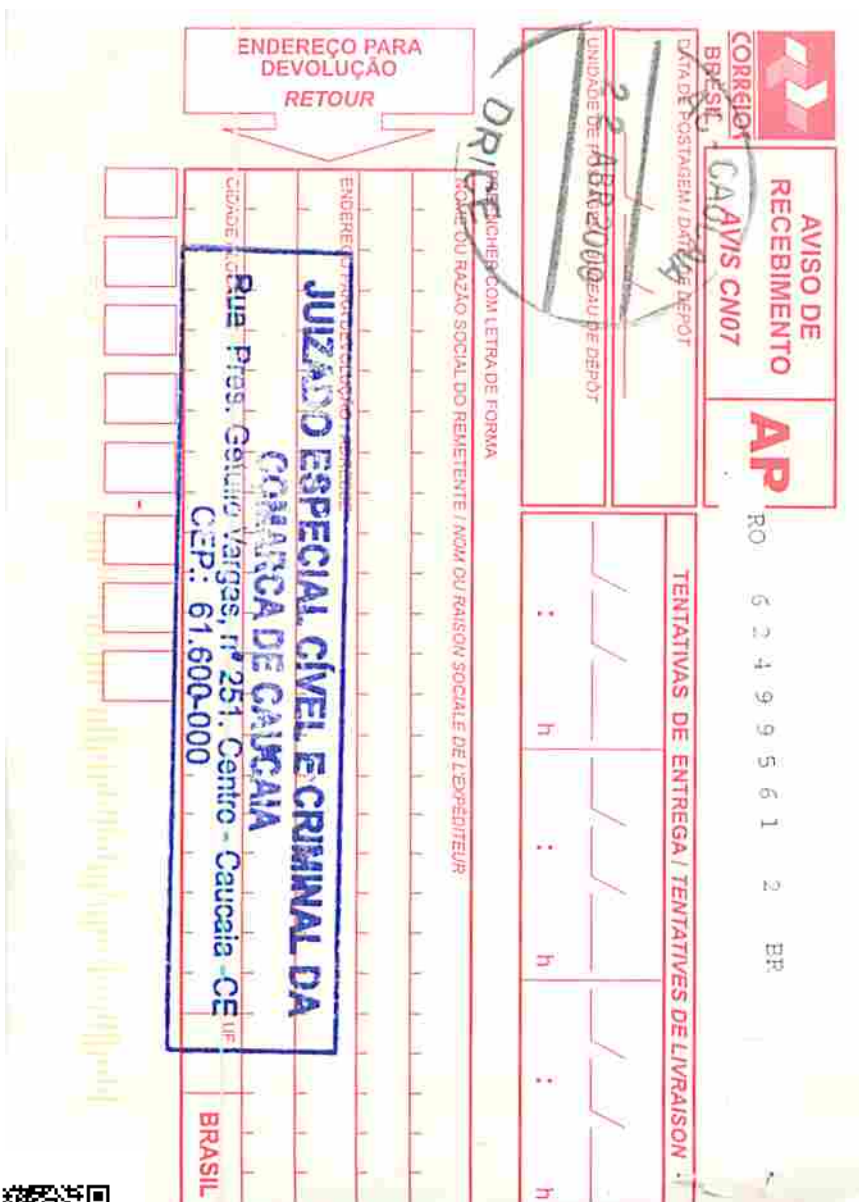 CORREIOS
BRÉSIL
AVISO DE
RECEBIMENTO
AVIS CN07
AP
RO 62499561 2 BR
DATA DE POSTAGEM / DATE DE DEPÔT
UNIDADE DE POSTAGEM / BUREAU DE DEPÔT
22 ABR 2009
DR/CE
TENTATIVAS DE ENTREGA / TENTATIVES DE LIVRAISON
/ / / / / /
: h : h : h
PREENCHER COM LETRA DE FORMA
NOME OU RAZÃO SOCIAL DO REMETENTE / NOM OU RAISON SOCIALE DE L'EXPÉDITEUR
ENDEREÇO PARA
DEVOLUÇÃO
RETOUR
ENDEREÇO PARA DEVOLUÇÃO / ADRESSE
JUIZADO ESPECIAL CÍVEL E CRIMINAL DA
COMARCA DE CAUCAIA
Rua Pres. Getulio Vargas, nº 251, Centro - Caucaia -CE
CEP.: 61.600-000
CIDADE
UF
BRASIL
-